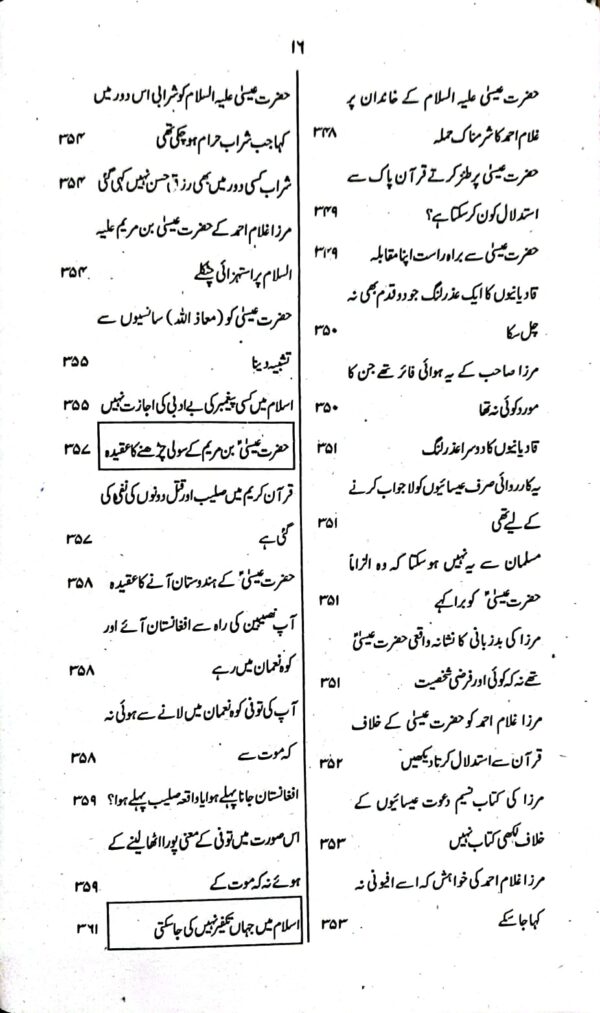 ۱۶
حضرت عیسیٰ علیہ السلام کے خاندان پر
غلام احمد کا شرمناک حملہ ۳۴۸
حضرت عیسیٰ پر طنز کرتے قرآن پاک سے
استدلال کون کر سکتا ہے؟ ۳۴۹
حضرت عیسیٰ سے براہ راست اپنا مقابلہ ۳۴۹
قادیانیوں کا ایک عذر لنگ جو دو قدم بھی نہ
چل سکا ۳۵۰
مرزا صاحب کے یہ ہوائی فائر تھے جن کا
مورد کوئی نہ تھا ۳۵۰
قادیانیوں کا دوسرا عذر لنگ ۳۵۱
یہ کارروائی صرف عیسائیوں کو لا جواب کرنے
کے لیے تھی ۳۵۱
مسلمان سے یہ نہیں ہو سکتا کہ وہ الزاماً
حضرت عیسیٰؑ کو برا کہے ۳۵۱
مرزا کی بدزبانی کا نشانہ واقعی حضرت عیسیٰؑ
تھے نہ کہ کوئی اور فرضی شخصیت ۳۵۱
مرزا غلام احمد کو حضرت عیسیٰ کے خلاف
قرآن سے استدلال کرتا دیکھیں ۳۵۲
مرزا کی کتاب نسیم دعوت عیسائیوں کے
خلاف لکھی کتاب نہیں ۳۵۳
مرزا غلام احمد کی خواہش کہ اسے افیونی نہ
کہا جا سکے ۳۵۳
حضرت عیسیٰ علیہ السلام کو شرابی اس دور میں
کہا جب شراب حرام ہو چکی تھی ۳۵۴
شراب کسی دور میں بھی رزق حسن نہیں کہی گئی ۳۵۴
مرزا غلام احمد کے حضرت عیسیٰ بن مریم علیہ
السلام پر استہزائی چٹکلے ۳۵۴
حضرت عیسیٰ کو (معاذ اللہ) سانسیوں سے
تشبیہ دینا ۳۵۵
اسلام میں کسی پیغمبر کی بے ادبی کی اجازت نہیں ۳۵۵
حضرت عیسیٰؑ بن مریم کے سولی چڑھنے کا عقیدہ ۳۵۷
قرآن کریم میں صلیب اور قتل دونوں کی نفی کی
گئی ہے ۳۵۷
حضرت عیسیٰؑ کے ہندوستان آنے کا عقیدہ ۳۵۸
آپ نصیبین کی راہ سے افغانستان آئے اور
کوہ نعمان میں رہے ۳۵۸
آپ کی توفی کوہ نعمان میں لانے سے ہوئی نہ
کہ موت سے ۳۵۸
افغانستان جانا پہلے ہوا یا واقعہ صلیب پہلے ہوا؟ ۳۵۹
اس صورت میں توفی کے معنی پورا اٹھا لینے کے
ہوئے نہ کہ موت کے ۳۵۹
اسلام میں جہاں تکفیر نہیں کی جا سکتی ۳۶۱